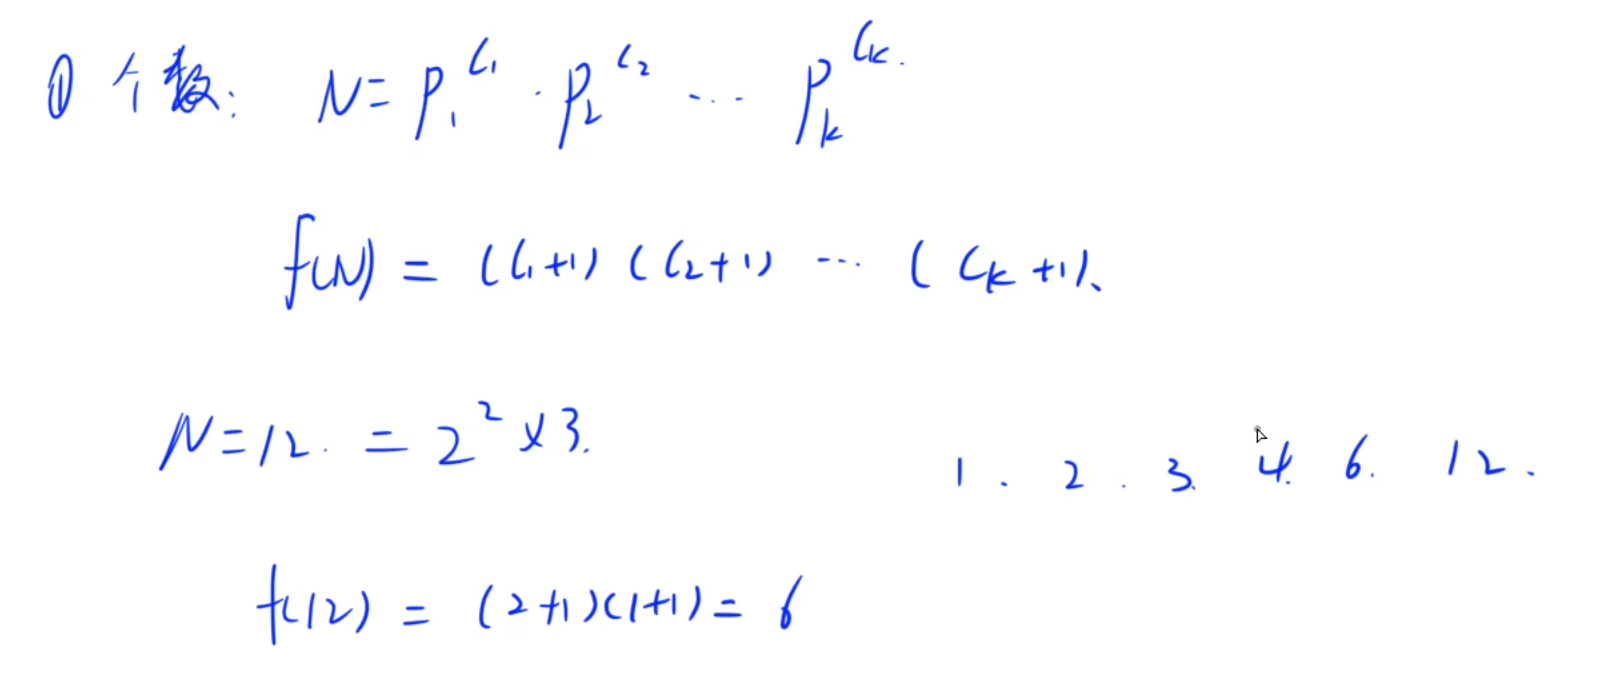 ① 个数: N = p₁^c₁ · p₂^c₂ ... p_k^c_k.
f(N) = (c₁+1) (c₂+1) ... (c_k+1).
N=12. = 2² × 3.
1. 2. 3. 4. 6. 12.
f(12) = (2+1)(1+1) = 6